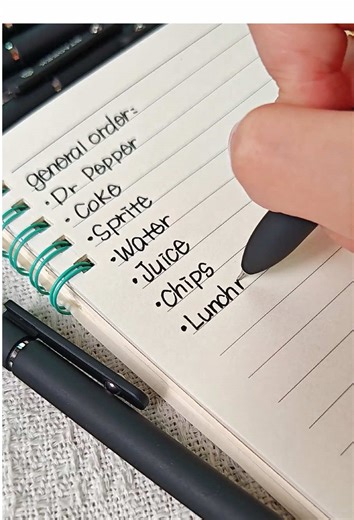 general order:
•Dr Pepper
•Coke
•Sprite
•Water
•Juice
•Chips
•Lunchr